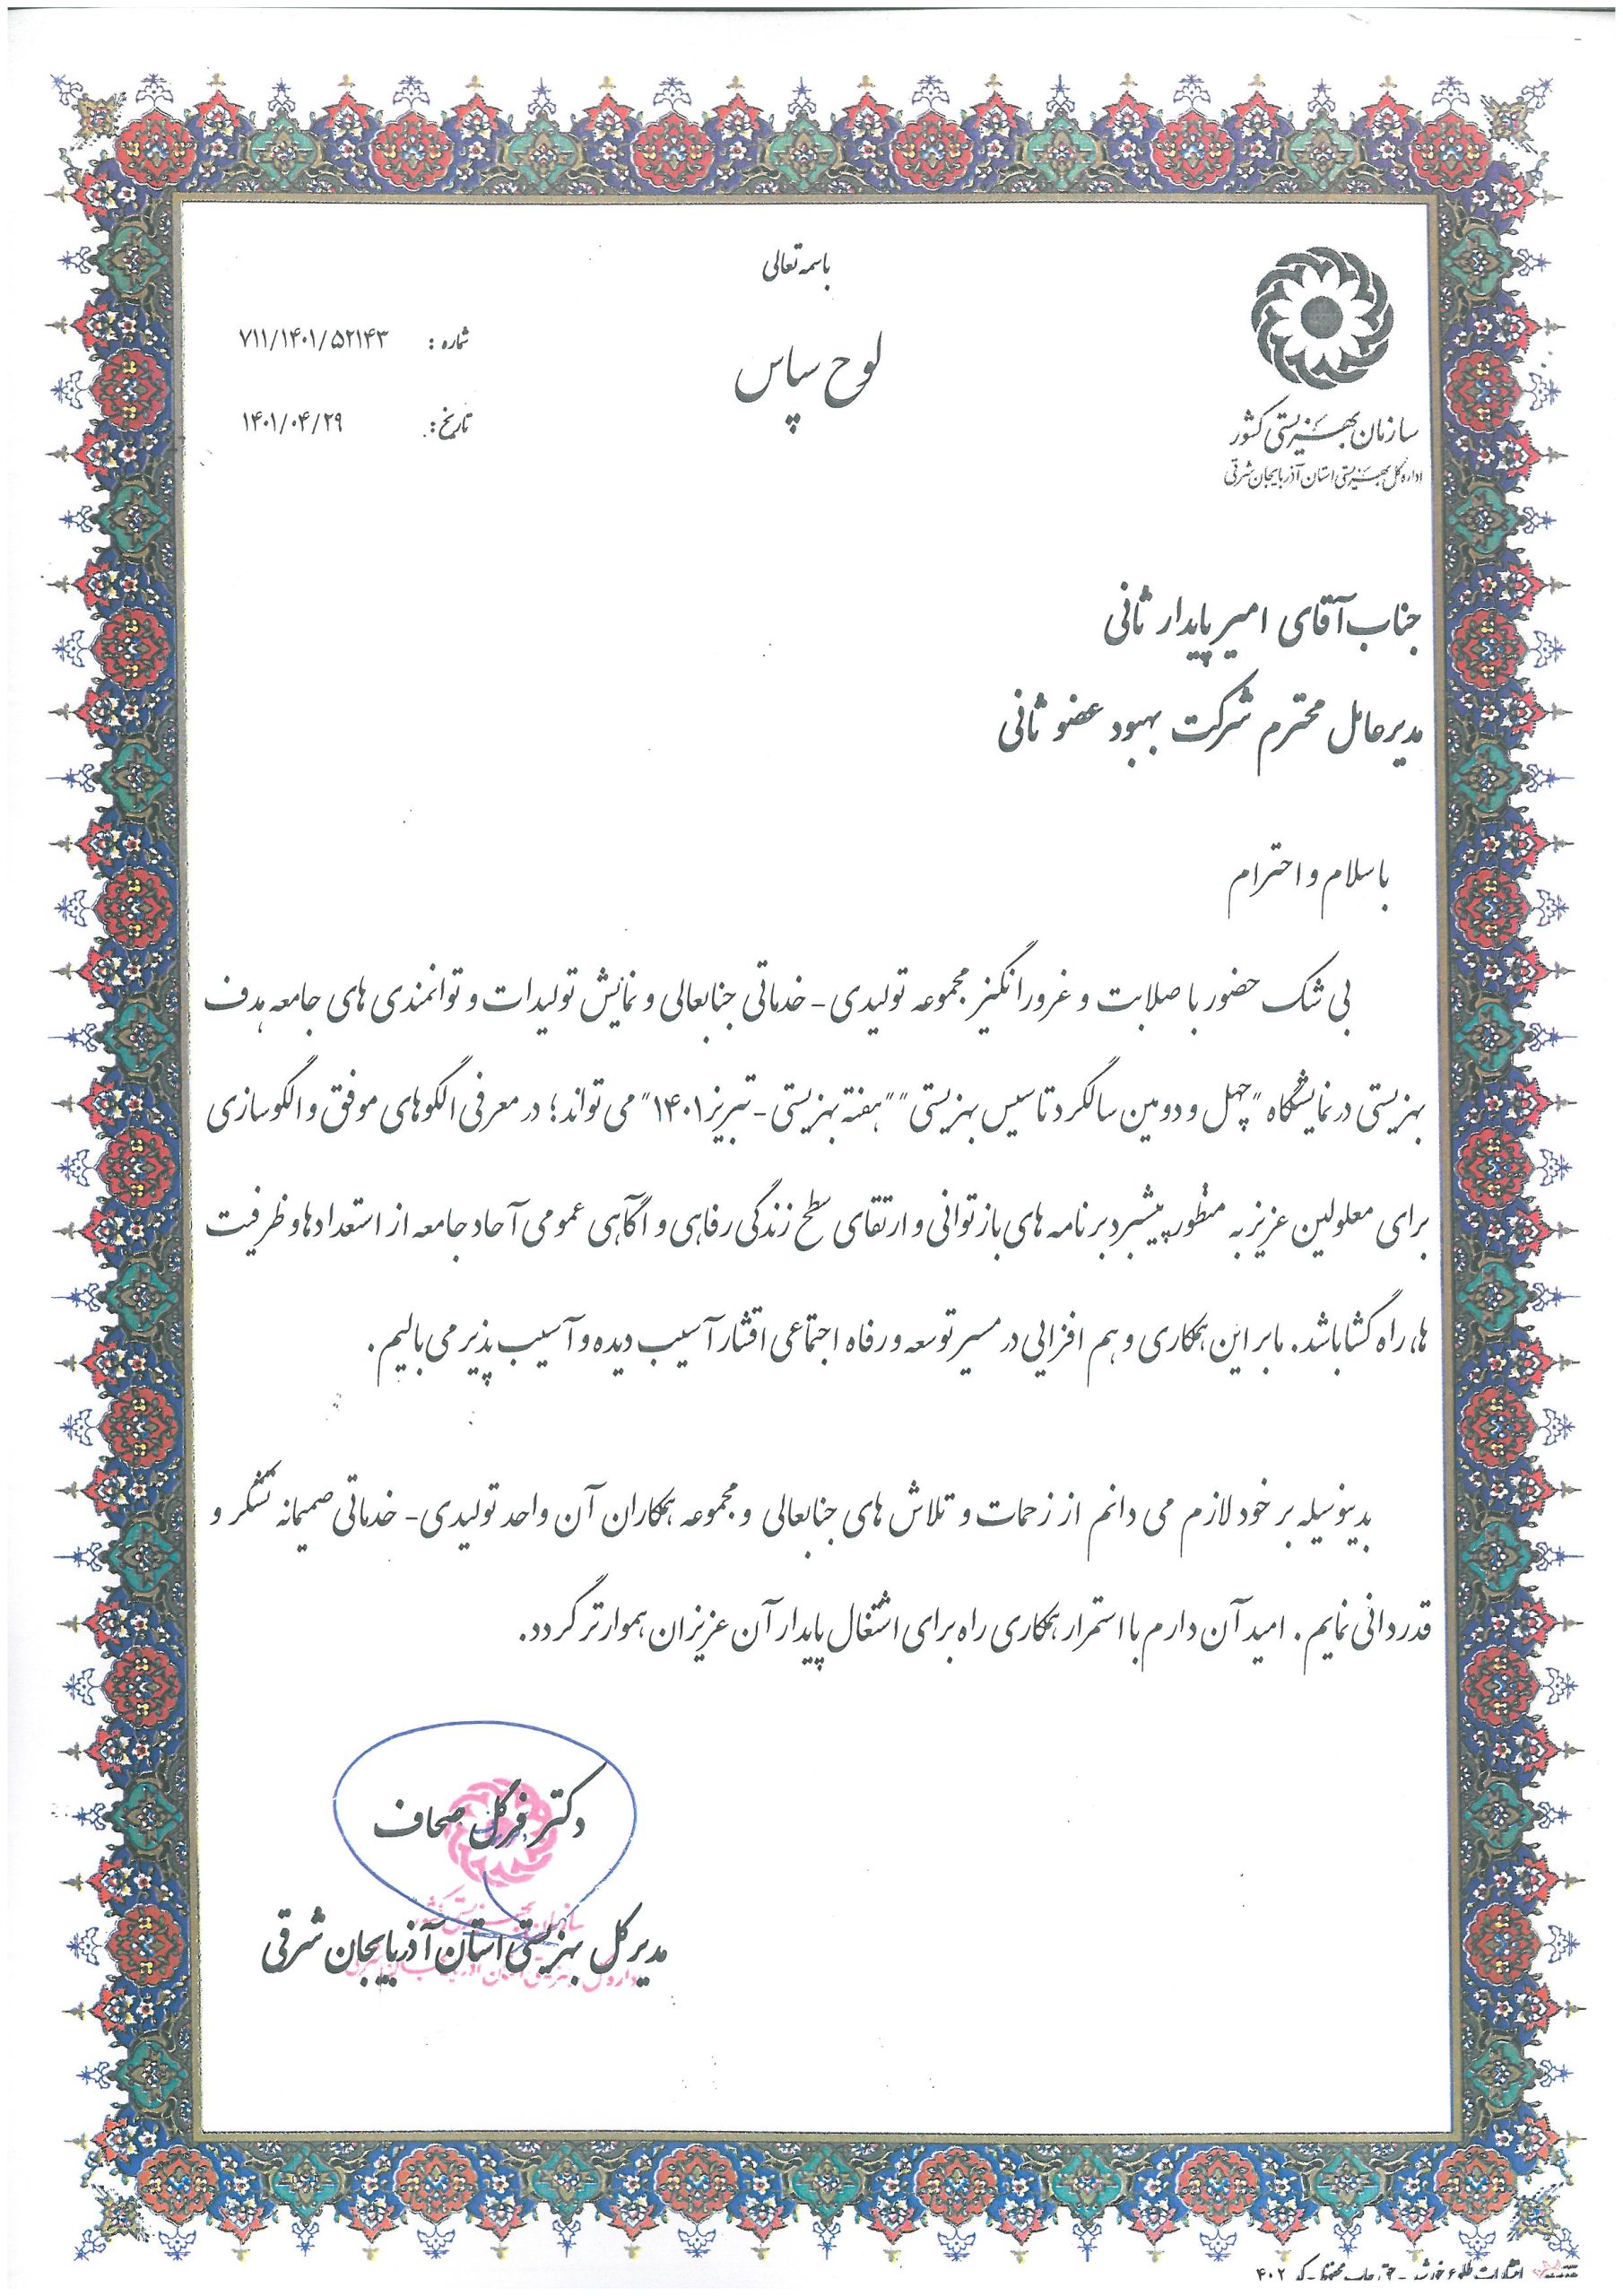 باسمه تعالی
لوح سپاس
شماره : ۷۱۱/۱۴۰۱/۵۲۱۴۳
تاریخ: ۱۴۰۱/۰۴/۲۹
سازمان بهزیستی کشور
اداره کل بهزیستی استان آذربایجان شرقی
جناب آقای امیر پایدار ثانی
مدیرعامل محترم شرکت بهبود عضو ثانی
با سلام و احترام
بی شک حضور با صلابت و غرورانگیز مجموعه تولیدی - خدماتی جنابعالی و نمایش تولیدات و توانمندی های جامعه هدف
بهزیستی در نمایشگاه "چهل و دومین سالگرد تاسیس بهزیستی" "هفته بهزیستی - تبریز ۱۴۰۱" می تواند؛ در معرفی الگوهای موفق و الگوسازی
برای معلولین عزیز به منظور پیشبرد برنامه های بازتوانی و ارتقای سطح زندگی رفاهی و آگاهی عمومی آحاد جامعه از استعدادها و ظرفیت
ها، راه گشا باشد. ما بر این همکاری و هم افزایی در مسیر توسعه و رفاه اجتماعی اقشار آسیب دیده و آسیب پذیر می بالیم.
بدینوسیله بر خود لازم می دانم از زحمات و تلاش های جنابعالی و مجموعه همکاران آن واحد تولیدی - خدماتی صمیمانه تشکر و
قدردانی نمایم. امید آن دارم با استمرار همکاری راه برای اشتغال پایدار آن عزیزان هموارتر گردد.
دکتر فرگل صحاف
مدیرکل بهزیستی استان آذربایجان شرقی
سازمان بهزیستی کشور
انتشارات طلوع خورشید - حق چاپ محفوظ - کد ۴۰۲